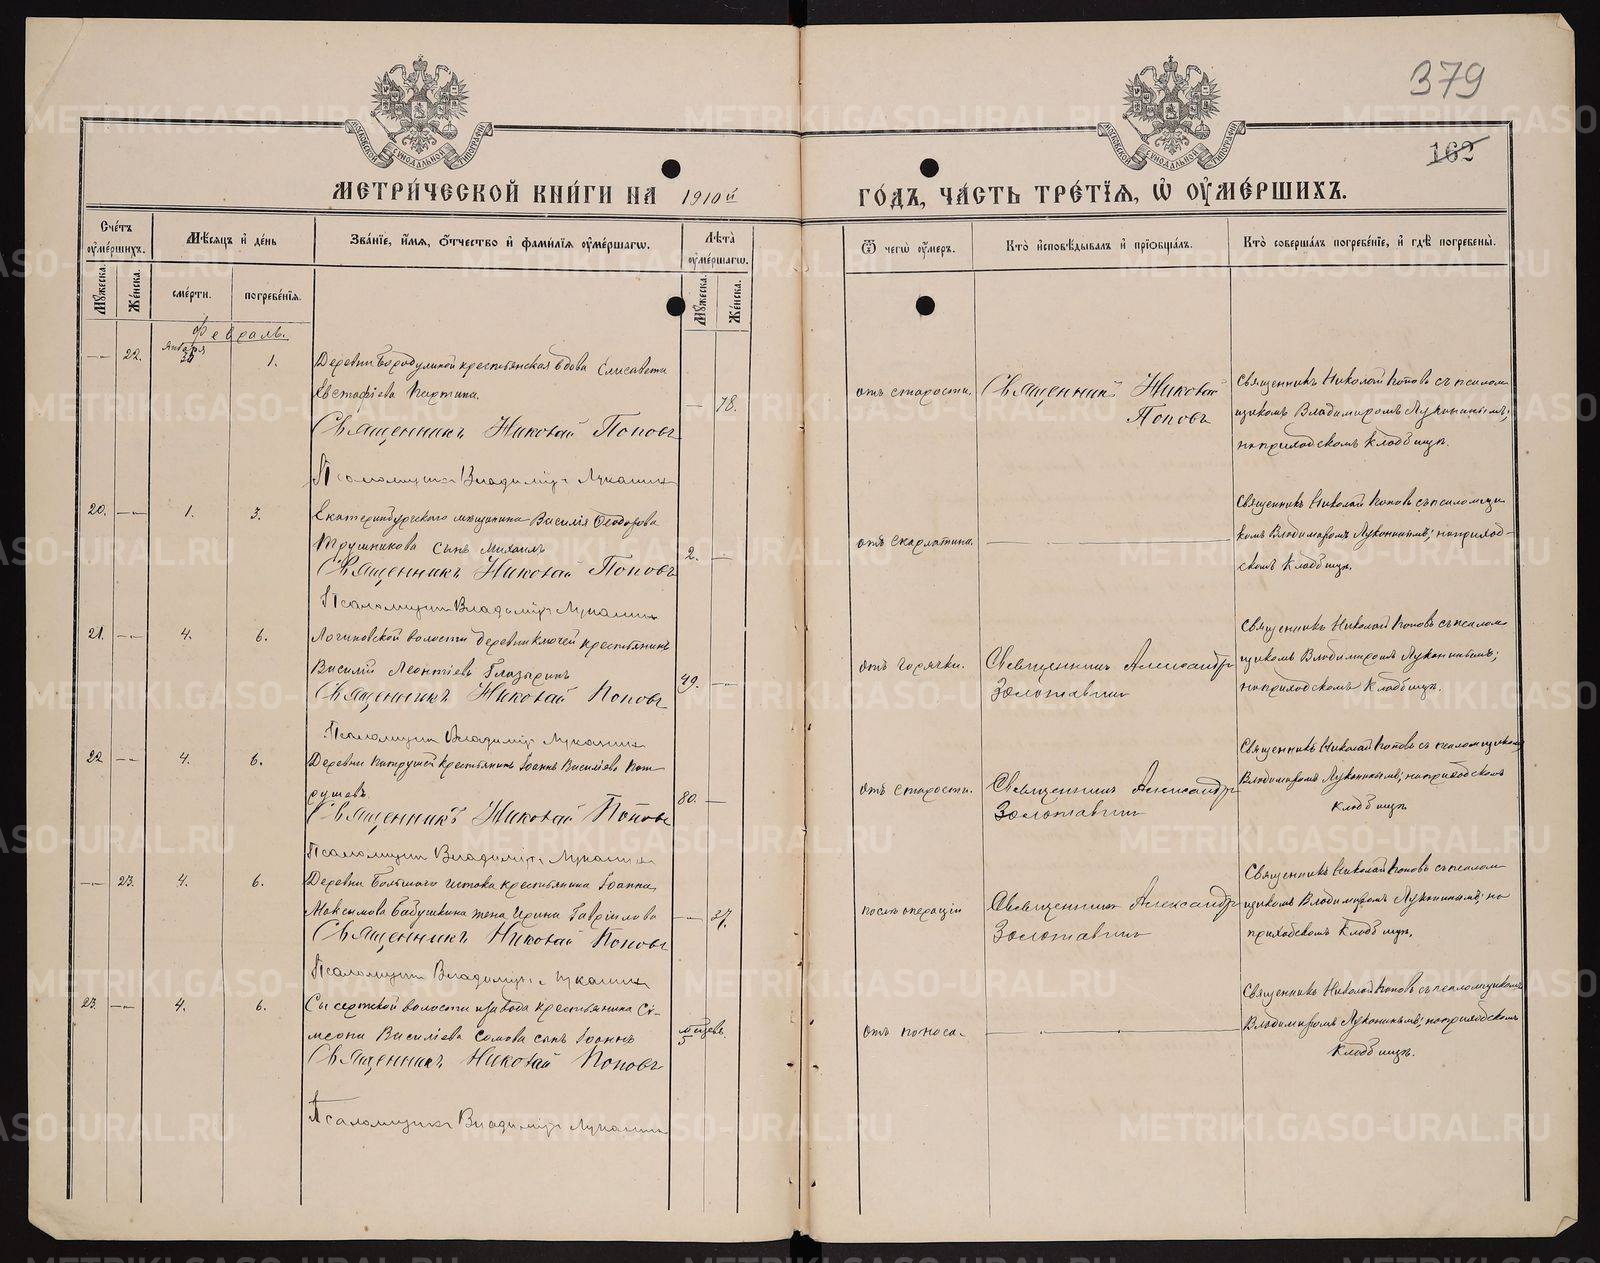 379
162
МЕТРИ́ЧЕСКОЙ КНИ́ГИ НА 1910й ГО́ДЪ, ЧА́СТЬ ТРЕ́ТЇѦ, Ѡ҆ ОУ҆МЕ́РШИХЪ.
Сче́тъ оу҆ме́ршихъ.
Мꙋ́жеска.
Же́нска.
Мѣ́сѧцъ и҆ де́нь
сме́рти.
погребе́нїѧ.
Зва́нїе, и҆́мѧ, ѻ҆́тчество и҆ фами́лїѧ оу҆ме́ршагѡ.
Лѣ́та оу҆ме́ршагѡ.
Мꙋ́жеска.
Же́нска.
Ѿ чегѡ̀ оу҆́меръ.
Кто̀ и҆сповѣ́дывалъ и҆ прїѡбща́лъ.
Кто̀ соверша́лъ погребе́нїе, и҆ гдѣ̀ погребены̀.
Февраль.
22.
Января
1.
Деревни Бородулиной крестьянская вдова Елисавета
Евстафіева
78.
Священникъ Николай Поповъ
Псаломщикъ Владиміръ Луканинъ
отъ старости.
Священникъ Николай
Поповъ
Священникъ Николай Поповъ съ псалом-
щикомъ Владиміромъ Луканинымъ;
на приходскомъ кладбищѣ.
20. 1. 3.
Екатеринбургскаго мѣщанина Василія Ѳеодорова
Трушникова сынъ Михаилъ
2.
Священникъ Николай Поповъ
Псаломщикъ Владиміръ Луканинъ
отъ скарлатины.
Священникъ Николай Поповъ съ псаломщи-
комъ Владиміромъ Луканинымъ; на приход-
скомъ кладбищѣ.
21. 4. 6.
Логиновской волости деревни Ключей крестьянинъ
Василій Леонтіевъ Глазыринъ
49.
Священникъ Николай Поповъ
Псаломщикъ Владиміръ Луканинъ
отъ горячки.
Священникъ Александръ
Золотавинъ
Священникъ Николай Поповъ съ псалом-
щикомъ Владиміромъ Луканинымъ;
на приходскомъ кладбищѣ.
22 4. 6.
Деревни Патрушей крестьянинъ Іоаннъ Василіевъ Пат-
рушевъ.
80.
Священникъ Николай Поповъ
Псаломщикъ Владиміръ Луканинъ
отъ старости.
Священникъ Александръ
Золотавинъ
Священникъ Николай Поповъ съ псаломщикомъ
Владиміромъ Луканинымъ; на приходскомъ
кладбищѣ
23. 4. 6.
Деревни Большаго Истока крестьянина Іоанна
Максимова Бабушкина жена Ирина Гавріилова
37.
Священникъ Николай Поповъ
Псаломщикъ Владиміръ Луканинъ
послѣ операціи
Священникъ Александръ
Золотавинъ
Священникъ Николай Поповъ съ псалом-
щикомъ Владиміромъ Луканинымъ; на
приходскомъ кладбищѣ.
23. 4. 6.
Сысертской волости и завода крестьянина Сі-
меона Василіева Сомова сынъ Іоаннъ
5 мѣсяцевъ.
Священникъ Николай Поповъ
Псаломщикъ Владиміръ Луканинъ
отъ поноса.
Священникъ Николай Поповъ съ псаломщикомъ
Владиміромъ Луканинымъ; на приходскомъ
кладбищѣ.
METRIKI.GASO-URAL.RU